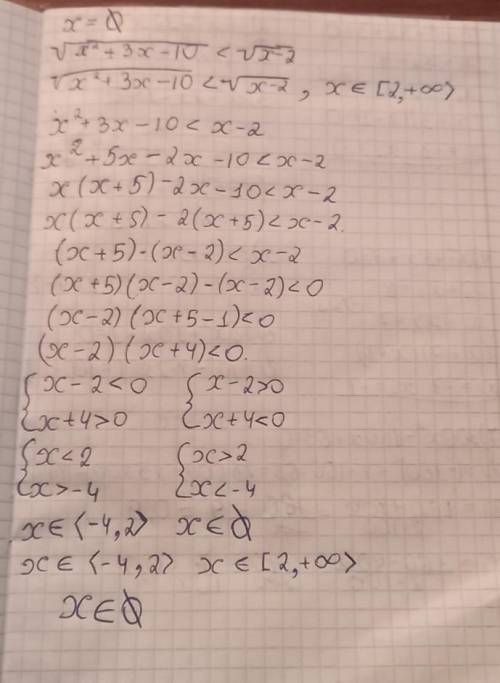 x = ∅
√x²+3x-10 < √x-2
√x²+3x-10 < √x-2 , x ∈ [2,+∞⟩
x²+3x-10 < x-2
x²+5x-2x-10 < x-2
x(x+5)-2x-10 < x-2
x(x+5)-2(x+5) < x-2.
(x+5)·(x-2) < x-2
(x+5)(x-2)-(x-2) < 0
(x-2)(x+5-1) < 0
(x-2)(x+4) < 0.
{ x-2 < 0 { x-2 > 0
x+4 > 0 x+4 < 0
{ x < 2 { x > 2
x > -4 x < -4
x ∈ ⟨-4,2⟩ x ∈ ∅
x ∈ ⟨-4,2⟩ x ∈ [2,+∞⟩
x ∈ ∅